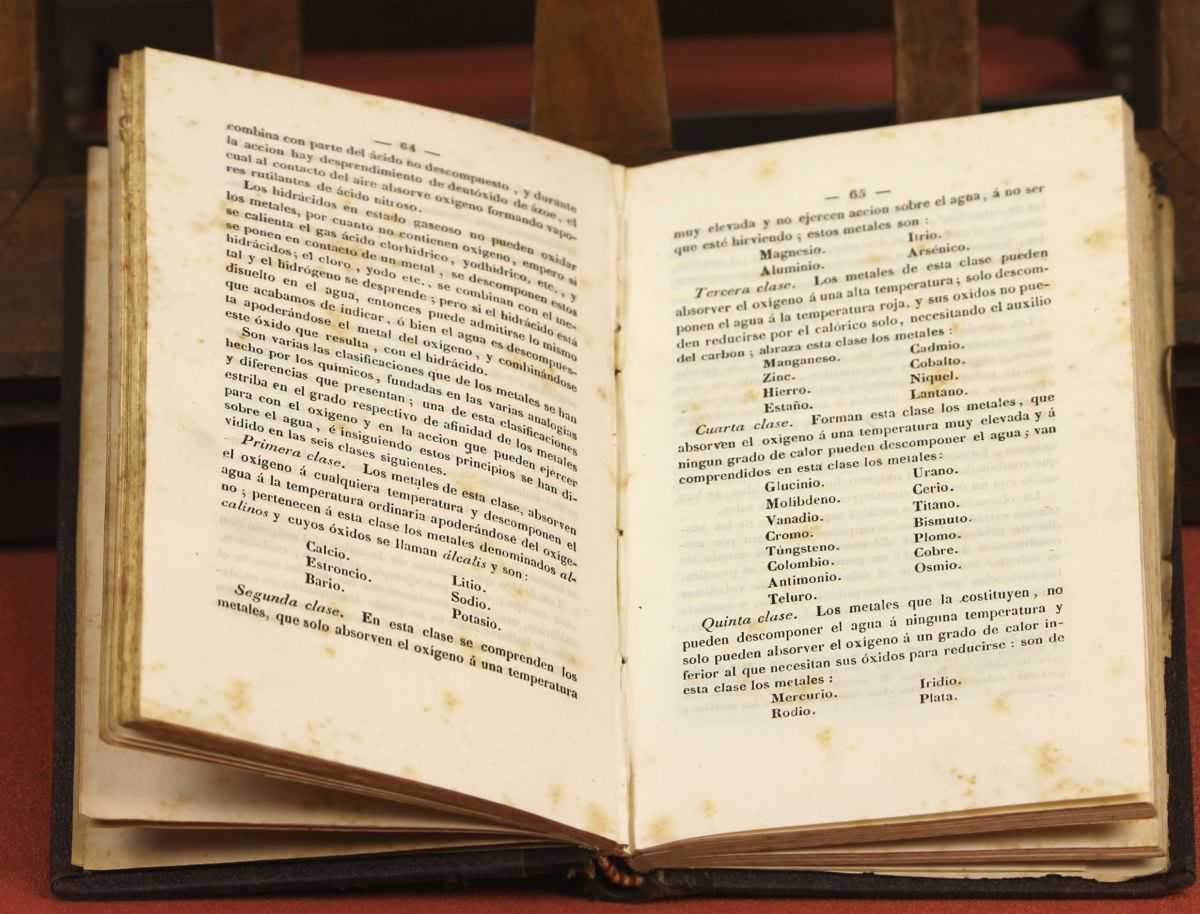 — 64 —
combina con parte del ácido no descompuesto, y durante
la accion hay desprendimiento de deutóxido de ázoe, el
cual al contacto del aire absorve oxígeno formando vapo-
res rutilantes de ácido nitroso.
Los hidrácidos en estado gaseoso no pueden oxidar
los metales, por cuanto no contienen oxígeno, empero si
se calienta el gas ácido clorhídrico, yodhídrico, etc., y
se ponen en contacto de un metal, se descomponen estos
hidrácidos; el cloro, yodo etc., se combinan con el me-
tal y el hidrógeno se desprende; pero si el hidrácido está
disuelto en el agua, entonces puede admitirse lo mismo
que acabamos de indicar, ó bien el agua es descompues-
ta apoderándose el metal del oxígeno, y combinándose
este óxido que resulta, con el hidrácido.
Son varias las clasificaciones que de los metales se han
hecho por los químicos, fundadas en las varias analogias
y diferencias que presentan; una de esta clasificaciones
estriba en el grado respectivo de afinidad de los metales
para con el oxígeno y en la accion que pueden ejercer
sobre el agua, é insiguiendo estos principios se han di-
vidido en las seis clases siguientes.
Primera clase. Los metales de esta clase, absorven
el oxígeno á cualquiera temperatura y descomponen el
agua á la temperatura ordinaria apoderándose del oxíge-
no; pertenecen á esta clase los metales denominados al-
calinos y cuyos óxidos se llaman álcalis y son:
Calcio. Litio.
Estroncio. Sodio.
Bario. Potasio.
Segunda clase. En esta clase se comprenden los
metales, que solo absorven el oxígeno á una temperatura
— 65 —
muy elevada y no ejercen accion sobre el agua, á no ser
que esté hirviendo; estos metales son:
Magnesio. Itrio.
Aluminio. Arsénico.
Tercera clase. Los metales de esta clase pueden
absorver el oxígeno á una alta temperatura; solo descom-
ponen el agua á la temperatura roja, y sus oxidos no pue-
den reducirse por el calórico solo, necesitando el auxilio
del carbon; abraza esta clase los metales:
Manganeso. Cadmio.
Zinc. Cobalto.
Hierro. Niquel.
Estaño. Lantano.
Cuarta clase. Forman esta clase los metales, que
absorven el oxígeno á una temperatura muy elevada y á
ningun grado de calor pueden descomponer el agua; van
comprendidos en esta clase los metales:
Glucinio. Urano.
Molibdeno. Cerio.
Vanadio. Titano.
Cromo. Bismuto.
Túngsteno. Plomo.
Colombio. Cobre.
Antimonio. Osmio.
Teluro.
Quinta clase. Los metales que la costituyen, no
pueden descomponer el agua á ninguna temperatura y
solo pueden absorver el oxígeno á un grado de calor in-
ferior al que necesitan sus óxidos para reducirse: son de
esta clase los metales:
Mercurio. Iridio.
Rodio. Plata.